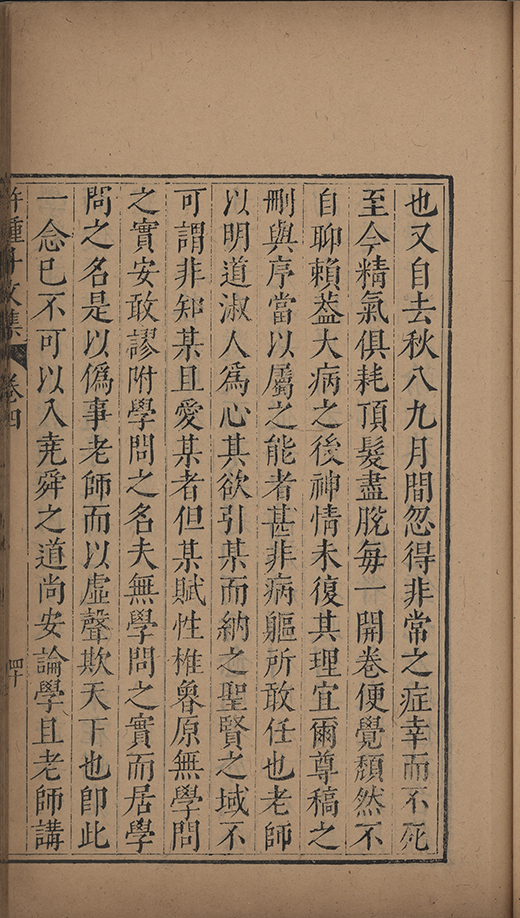 也又自去秋八九月間忽得非常之症幸而不死
至今精氣俱耗頂髮盡脫每一開卷便覺頹然不
自聊賴葢大病之後神情未復其理宜爾尊稿之
刪與序當以屬之能者甚非病軀所敢任也老師
以明道淑人爲心其欲引某而納之聖賢之域不
可謂非知某且愛某者但某賦性椎魯原無學問
之實安敢謬附學問之名夫無學問之實而居學
問之名是以僞事老師而以虛聲欺天下也卽此
一念已不可以入堯舜之道尚安論學且老師講
文集 卷四 四十